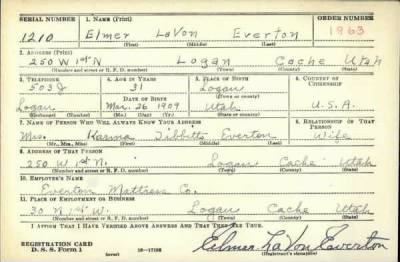 SERIAL NUMBER 1. NAME (Print) ORDER NUMBER
1210 Elmer LaVon Everton 1963
(First) (Middle) (Last)
2. ADDRESS (Print)
250 W 1st N Logan Cache Utah
(Number and street or R. F. D. number) (Town) (County) (State)
3. TELEPHONE 4. AGE IN YEARS 5. PLACE OF BIRTH 6. COUNTRY OF CITIZENSHIP
503J 31 Logan
DATE OF BIRTH (Town or county)
Logan Mar. 26 1909 Utah U.S.A.
(Exchange) (Number) (Mo.) (Day) (Yr.) (State or country)
7. NAME OF PERSON WHO WILL ALWAYS KNOW YOUR ADDRESS 8. RELATIONSHIP OF THAT PERSON
Mrs. Karma Tibbitts Everton Wife
(Mr., Mrs., Miss) (First) (Middle) (Last)
9. ADDRESS OF THAT PERSON
250 W 1st N. Logan Cache Utah
(Number and street or R. F. D. number) (Town) (County) (State)
10. EMPLOYER'S NAME
Everton Mattress Co.
11. PLACE OF EMPLOYMENT OR BUSINESS
30 N. 1st W. Logan Cache Utah
(Number and street or R. F. D. number) (Town) (County) (State)
I AFFIRM THAT I HAVE VERIFIED ABOVE ANSWERS AND THAT THEY ARE TRUE.
REGISTRATION CARD
D. S. S. Form 1 (over) 16—17105 Elmer LaVon Everton
(Registrant's signature)